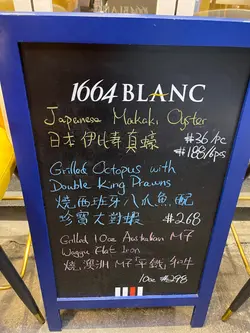 1664 BLANC
Japanese Makaki Oyster
日本伊比寿真蠔 #36/1pc
#188/6pcs
Grilled Octopus with
Double King Prawns
燒西班牙八爪魚配
珍寶大對蝦 #268
Grilled 10oz Australian M7
Wagyu Flat Iron
燒澳洲M7平鐵和牛
10oz #298